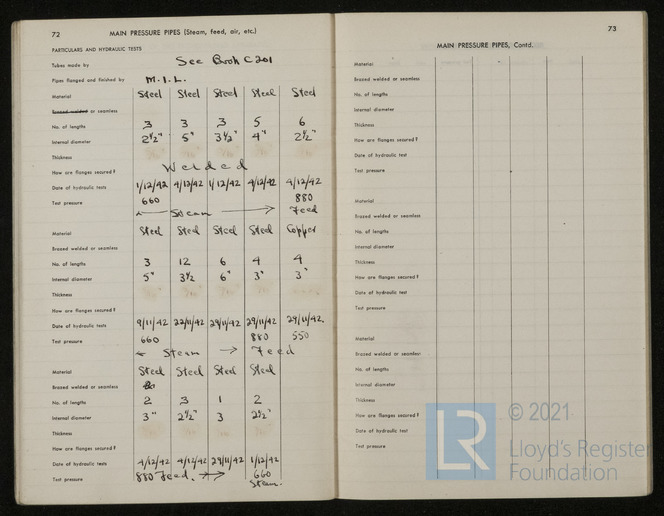 72 MAIN PRESSURE PIPES (Steam, feed, air, etc.)
PARTICULARS AND HYDRAULIC TESTS
Tubes made by See Book C201
Pipes flanged and finished by M.I.L.
Material Steel Steel Steel Steel Steel
Brazed welded or seamless
No. of lengths 3 3 3 5 6
Internal diameter 2½" 5" 3½" 4" 2½"
Thickness
How are flanges secured? Welded
Date of hydraulic tests 1/12/42 4/12/42 1/12/42 4/12/42 4/12/42
Test pressure 660 880
← Steam → Feed
Material Steel Steel Steel Steel Copper
Brazed welded or seamless
No. of lengths 3 12 6 4 4
Internal diameter 5" 3½ 6" 3" 3"
Thickness
How are flanges secured?
Date of hydraulic tests 9/11/42 22/11/42 29/11/42 29/11/42 29/11/42.
Test pressure 660 880 550
← Steam → Feed
Material Steel Steel Steel Steel
Brazed welded or seamless
No. of lengths 2 3 1 2
Internal diameter 3" 2½" 3 2½"
Thickness
How are flanges secured?
Date of hydraulic tests 4/12/42 4/12/42 29/11/42 1/12/42
Test pressure 880 Feed. → 660
Steam.
73
MAIN PRESSURE PIPES, Contd.
Material
Brazed welded or seamless
No. of lengths
Internal diameter
Thickness
How are flanges secured?
Date of hydraulic test
Test pressure
Material
Brazed welded or seamless
No. of lengths
Internal diameter
Thickness
How are flanges secured?
Date of hydraulic test
Test pressure
Material
Brazed welded or seamless
No. of lengths
Internal diameter
Thickness
How are flanges secured?
Date of hydraulic test
Test pressure
LR
© 2021
Lloyd's Register
Foundation